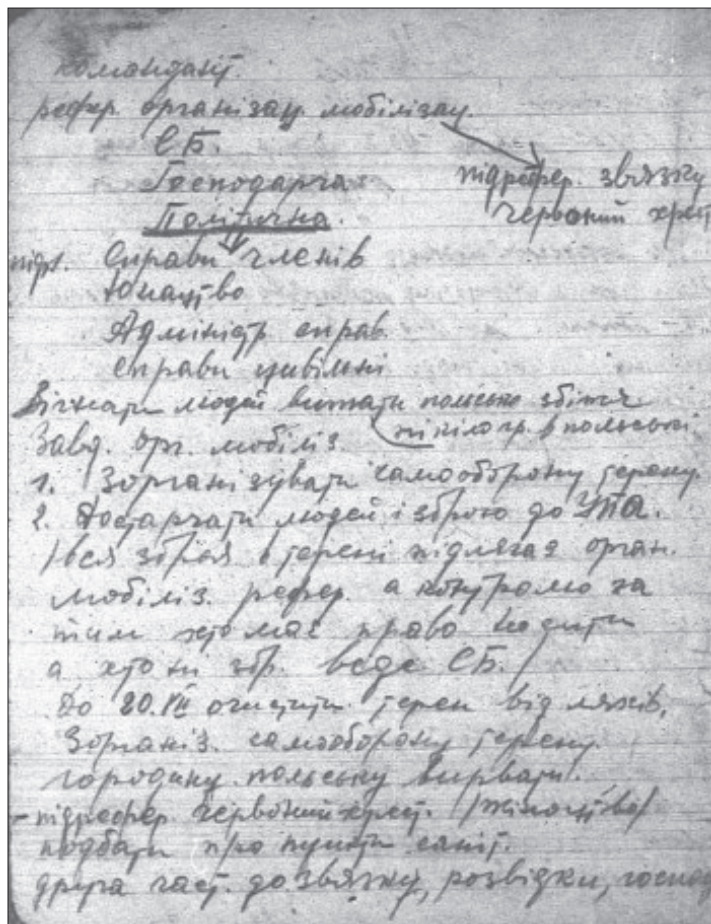 командант.
рефер. організац. мобілізац.
СБ.
Господарча
підрефер. звязку
Політична.
червоний хрест
підр. Справи членів
Юнацтво
Адміністр справ.
справи цивільні
Вігнати людей вижати польське збіжжя
Завд. орг. мобіліз. в польські
1. Зорганізувати самооборону терену.
2. Достарчати людей і зброю до УПА.
/вся зброя в терені підлягає орган.
мобіліз. рефер. а контролю за
тим хто має право носити
а хто ні збр. веде СБ./
До 20.VII очистити терен від ляхів,
Зорганіз. самооборону терену.
городину польську вирвати.
- підрефер. червоний хрест. /жіноцтво/
подбати про пункти саніт.
друга част. до звязку, розвідки, господ